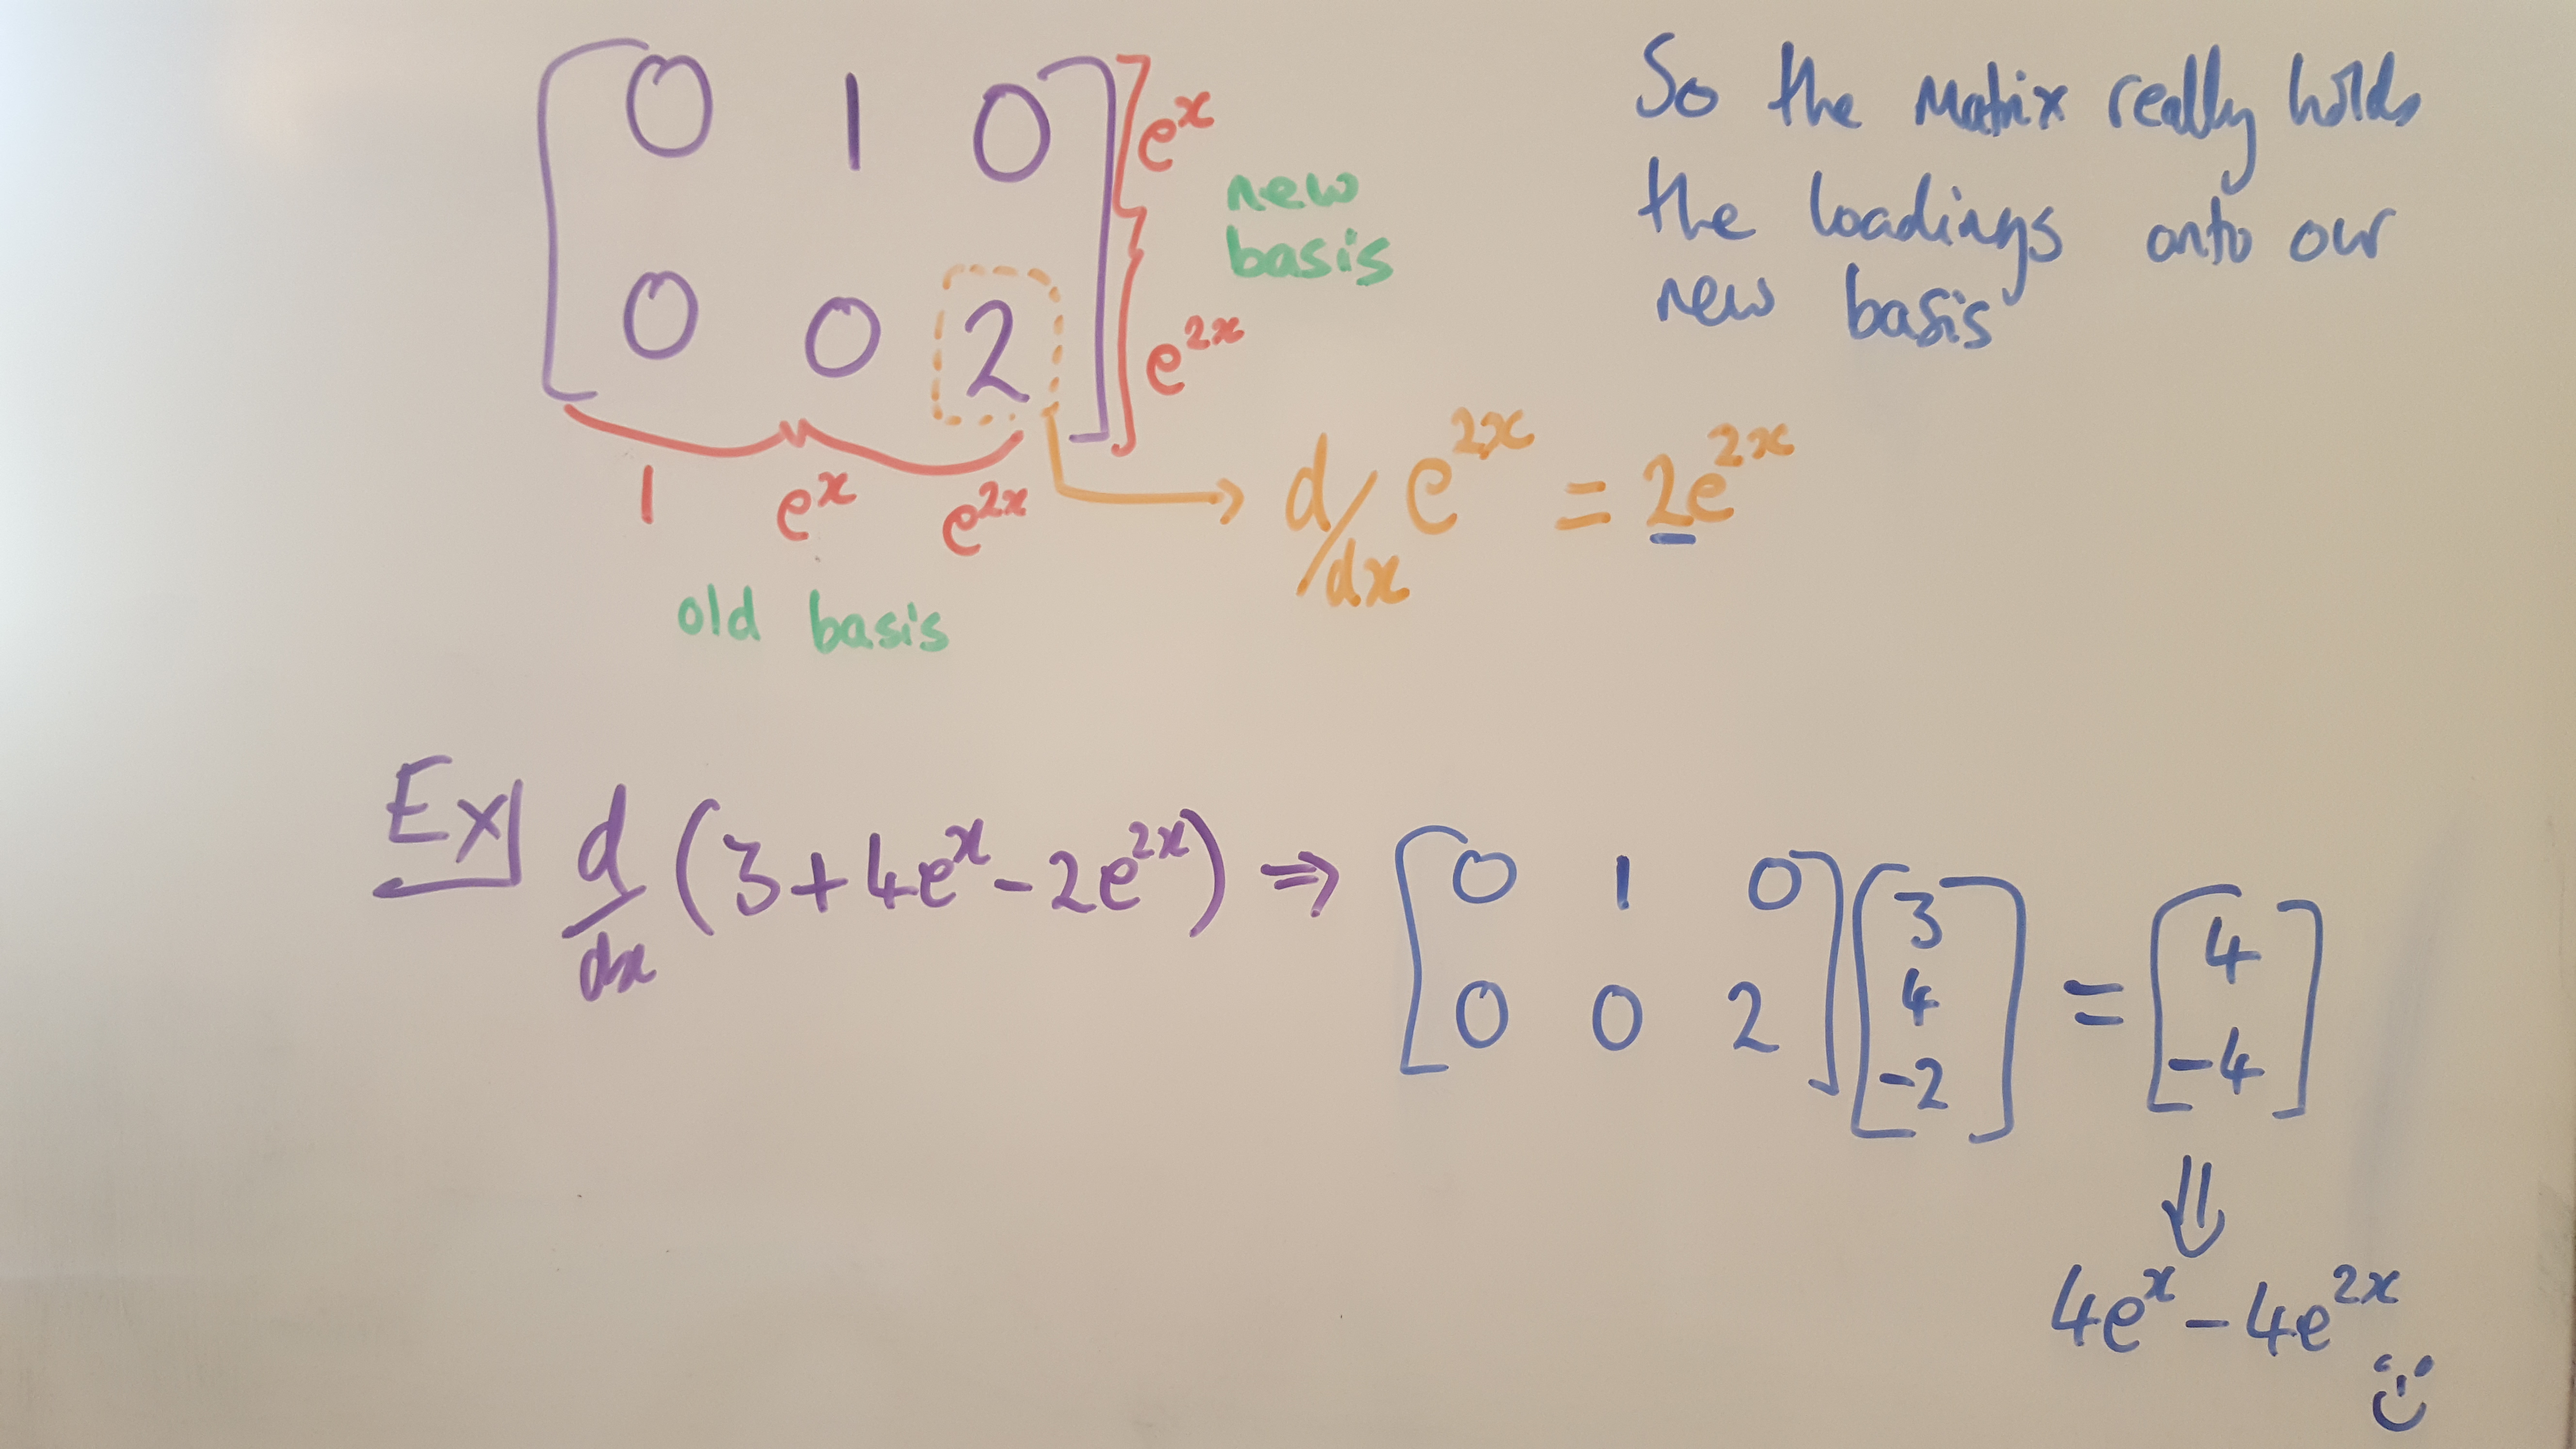 0 1 0 e^x
0 0 2 e^{2x}
new
basis
1 e^x e^{2x}
old basis
So the Matrix really holds
the loadings onto our
new basis
d/dx e^{2x} = 2e^{2x}
Ex d/dx (3 + 4e^x - 2e^{2x}) ⇒ [0 1 0; 0 0 2] [3; 4; -2] = [4; -4]
⇓
4e^x - 4e^{2x}